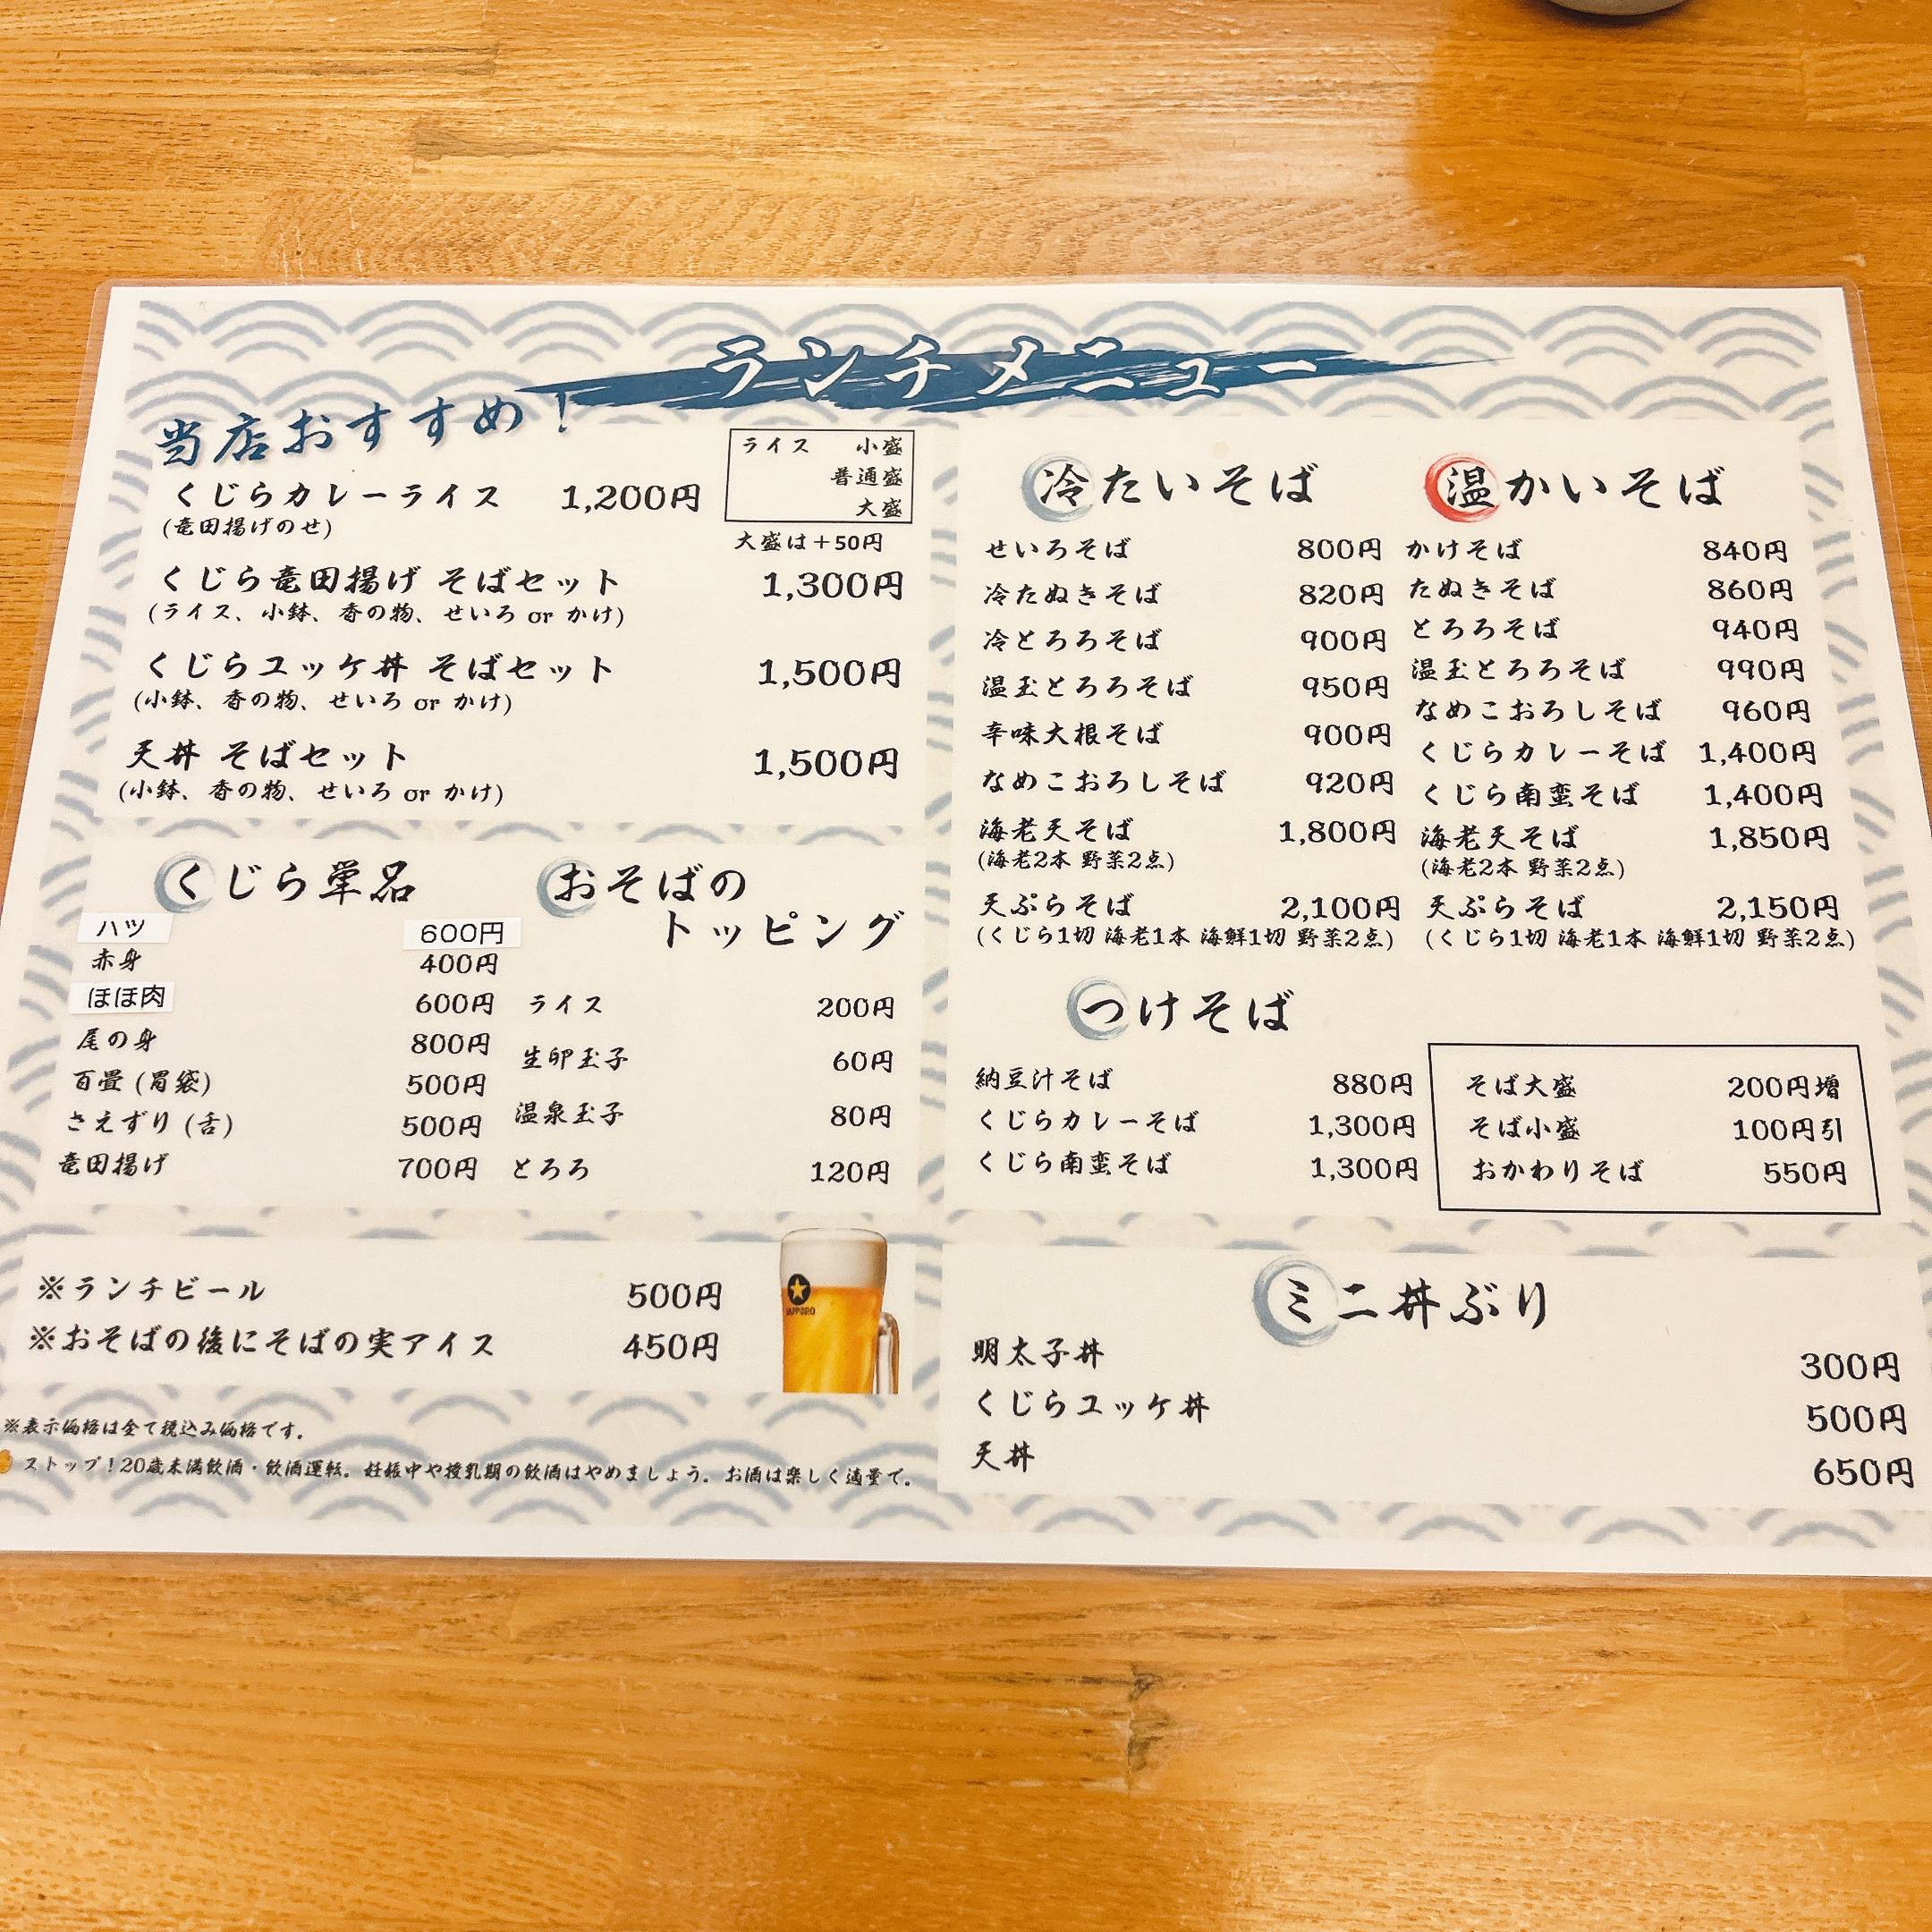 ランチメニュー
当店おすすめ!
くじらカレーライス 1,200円
(竜田揚げのせ)
ライス 小盛
普通盛
大盛
大盛は+50円
くじら竜田揚げ そばセット 1,300円
(ライス、小鉢、香の物、せいろ or かけ)
くじらユッケ丼 そばセット 1,500円
(小鉢、香の物、せいろ or かけ)
天丼 そばセット 1,500円
(小鉢、香の物、せいろ or かけ)
くじら単品
ハツ 600円
赤身 400円
ほほ肉 600円
尾の身 800円
百畳 (胃袋) 500円
さえずり (舌) 500円
竜田揚げ 700円
おそばの
トッピング
ライス 200円
生卵玉子 60円
温泉玉子 80円
とろろ 120円
※ランチビール 500円
※おそばの後にそばの実アイス 450円
SAPPORO
※表示価格は全て税込み価格です。
ストップ!20歳未満飲酒・飲酒運転。妊娠中や授乳期の飲酒はやめましょう。お酒は楽しく適量で。
冷たいそば
せいろそば 800円
冷たぬきそば 820円
冷とろろそば 900円
温玉とろろそば 950円
辛味大根そば 900円
なめこおろしそば 920円
海老天そば 1,800円
(海老2本 野菜2点)
天ぷらそば 2,100円
(くじら1切 海老1本 海鮮1切 野菜2点)
温かいそば
かけそば 840円
たぬきそば 860円
とろろそば 940円
温玉とろろそば 990円
なめこおろしそば 960円
くじらカレーそば 1,400円
くじら南蛮そば 1,400円
海老天そば 1,850円
(海老2本 野菜2点)
天ぷらそば 2,150円
(くじら1切 海老1本 海鮮1切 野菜2点)
つけそば
納豆汁そば 880円
くじらカレーそば 1,300円
くじら南蛮そば 1,300円
そば大盛 200円増
そば小盛 100円引
おかわりそば 550円
ミニ丼ぶり
明太子丼 300円
くじらユッケ丼 500円
天丼 650円